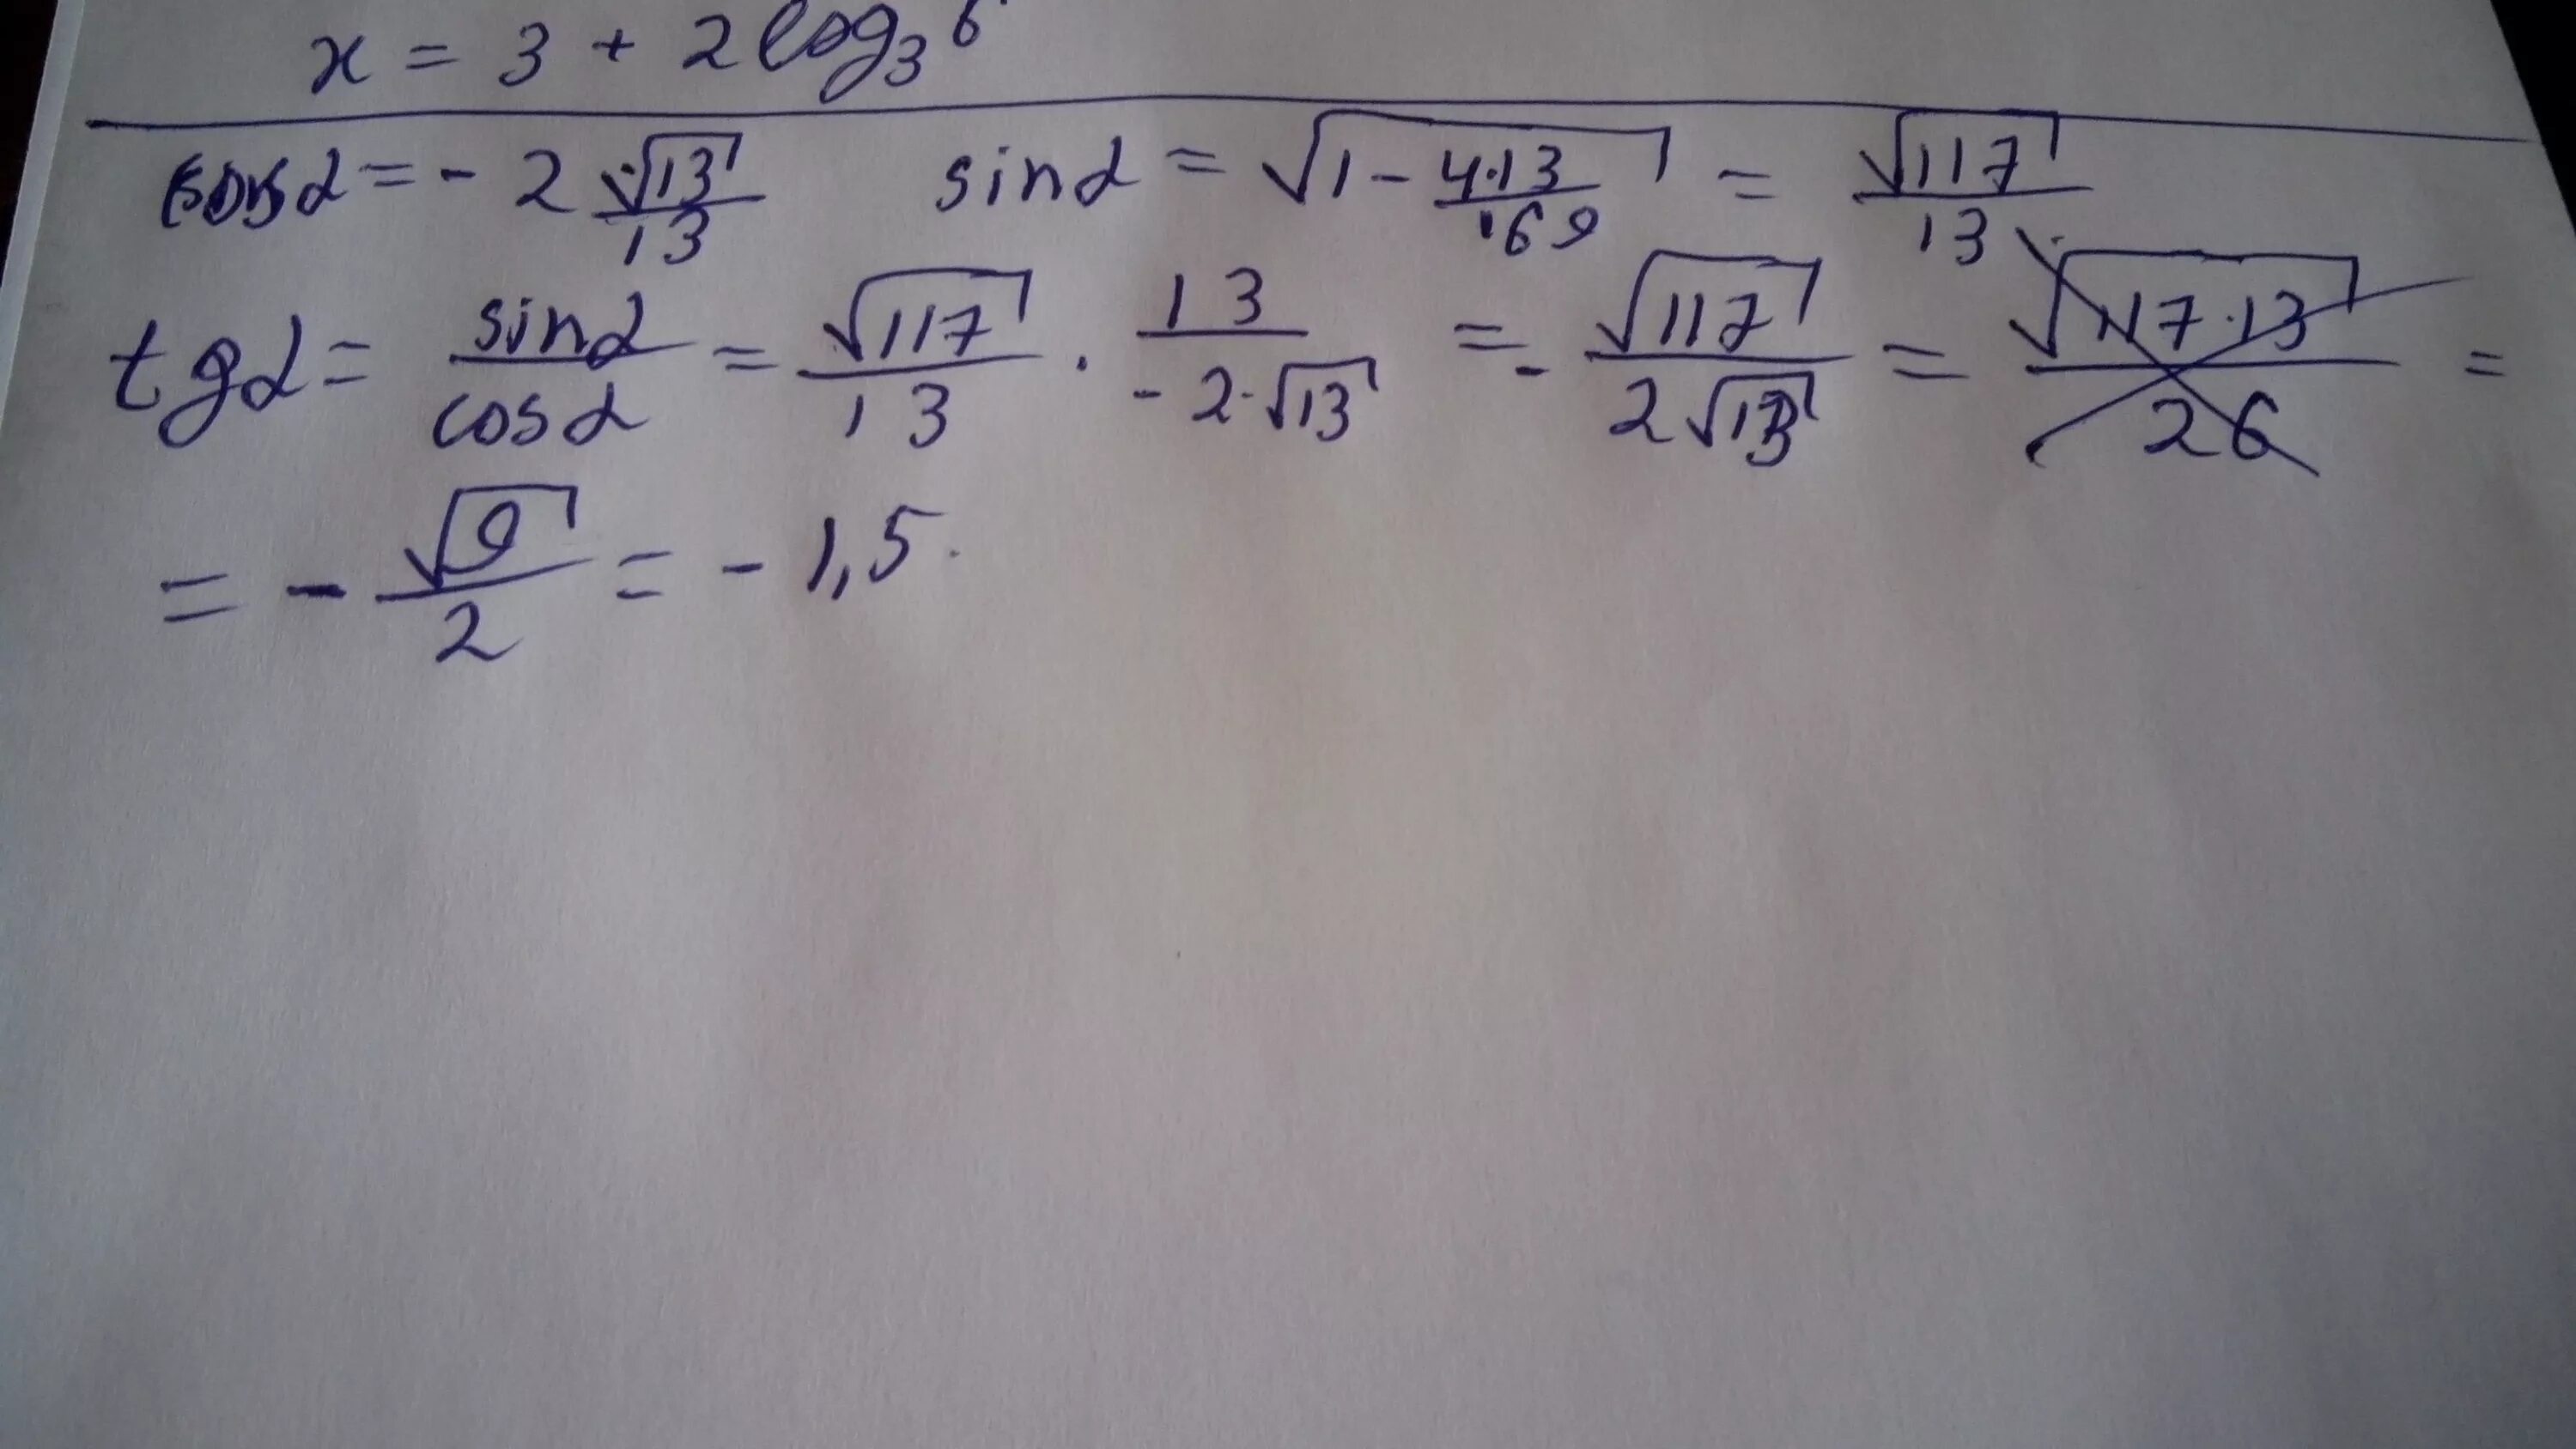 x = 3 + 2 log₃ 6
cos α = - 2 √13/13 sin α = √(1 - 4·13/169) = √117/13
tg α = sin α/cos α = √117/13 · 13/(-2·√13) = - √117/(2√13) = √(117·13)/26 =
= - √9/2 = - 1,5.